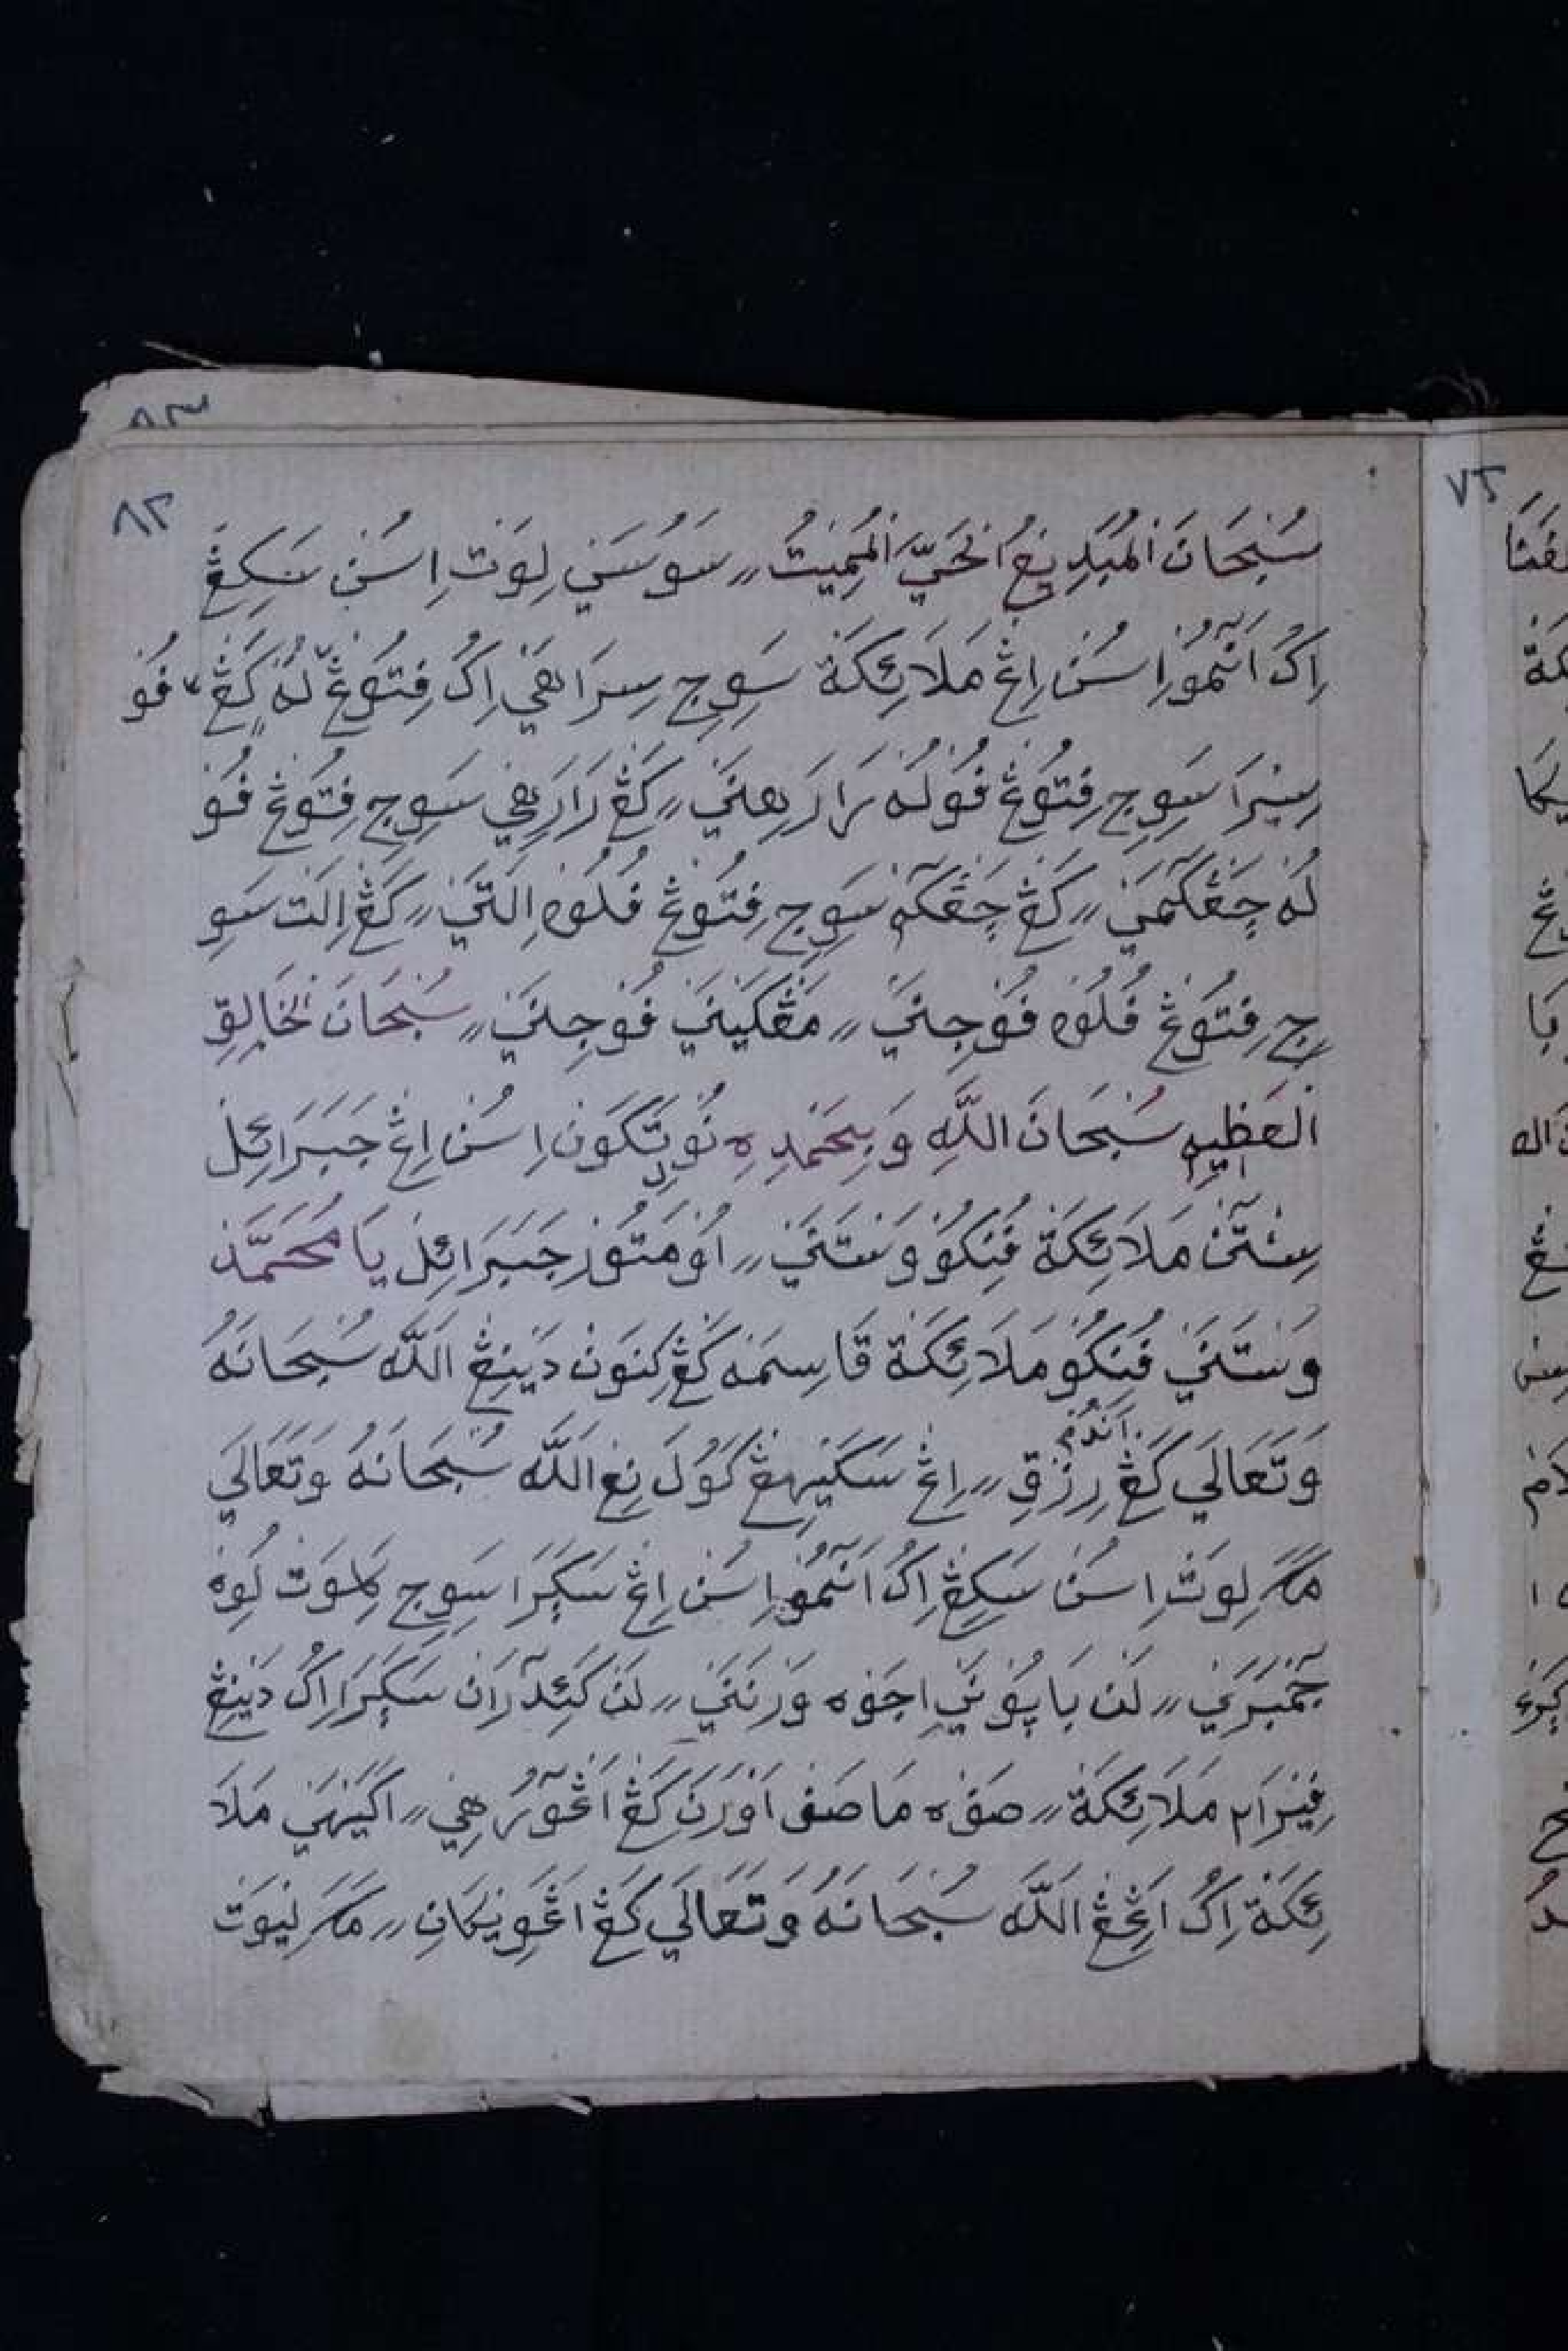 ٨٣
٨٢
سُبْحَانَ الْمُبْدِيْعُ الْحَيِّ الْمُمِيْتُ〃 سَوُسَنِي لِوَت اِسُن سَكِڠَ
اِكُ اَنَمُوْ اِسُن اِڠ مَلَائِكَة سَوِجِ سِرَاهَي اِكُ فِتُوڠ لُه كَڠ فُوْ
سِرَا سَوِجِ فِتُوڠ فُوْلُه رَارَهِنَي〃 كَڠ رَارَهِي سَوِجِ فِتُوڠ فُوْ
لُه چَڠْكَمَنَي〃 كَڠ چَڠْكَم سَوِجِ فِتُوڠ فُلُوْه اِلَتَنَي〃 كَڠ اِلَت سَوِ
جِ فِتُوڠ فُلُوْه فُوْجِنَي〃 مَڠْكَيْنَي فُوْجِنَي〃 سُبْحَانَ الْخَالِقِ
الْعَظِيْمِ سُبْحَانَ اللّٰهِ وَبِحَمْدِهِ نُوْلِ تَكَوْن اِسُن اِڠ جِبَرَائِل
سِنْتَن مَلَائِكَة فُنِكُوْ وَسْتَنَي〃 اُوْمَتُوْر جِبَرَائِل يَا مُحَمَّد
وَسْتَنَي فُنِكُوْ مَلَائِكَة قَاسِمَه كَڠ كِنَوْن دَيْنِڠ اَللّٰه سُبْحَانَهُ
اَنْدُم
وَتَعَالَي كَڠ رِزْقِ〃 اِڠ سَكَيْهِڠ كَوُلَ نِڠ اَللّٰه سُبْحَانَهُ وَتَعَالَي
مَكَ لِوَت اِسُن سَكِڠ اِكُ اَنَمُوْ اِسُن اِڠ سَكَرَا سَوِجِ لِوَت لُوِه
جَمْبَرَي〃 لَن بَاپُوْنَي اِجَوْه وَرْنَنَي〃 لَن كَئِدَرَان سَكَرَا اِكُ دَيْنِڠ
فِيْرَام مَلَائِكَة〃 صَفْ مَاصَف اَوْرَنَ كَڠ اَڠَوْرُهِي〃 اَكَيْهَي مَلَا
ئِكَة اِكُ اَڠِڠ اَللّٰه سُبْحَانَهُ وَتَعَالَي كَڠ اَڠَوِيْكَانِ〃 مَكَ لِيْوَت
٧٢